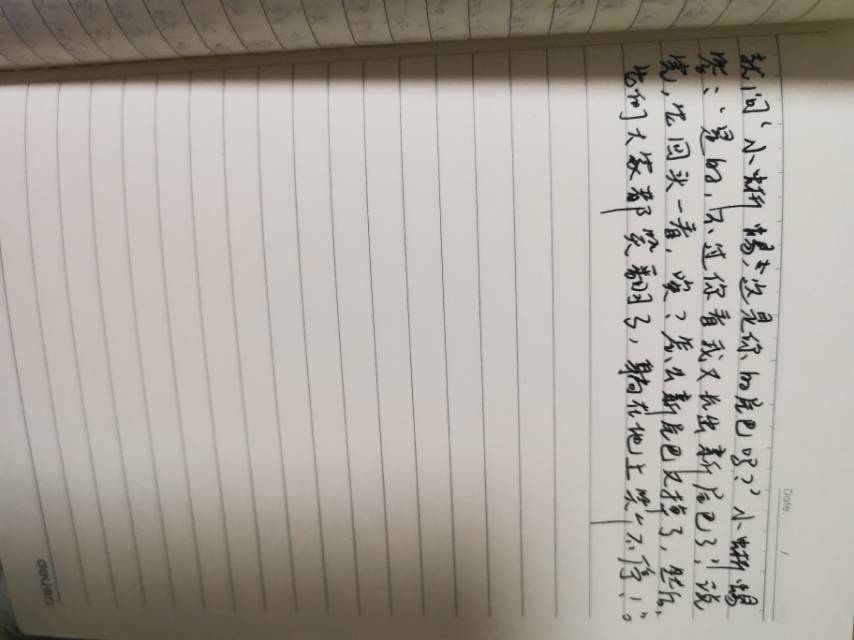 Date. /
就问“小蜥蜴,这是你的尾巴吗?”小蜥蜴
答:“是的,不过你看我又长出新尾巴了”说
完,它回头一看,咦?怎么新尾巴又掉了,
它们大家都笑翻了,躺在地上笑个不停!”。
deli